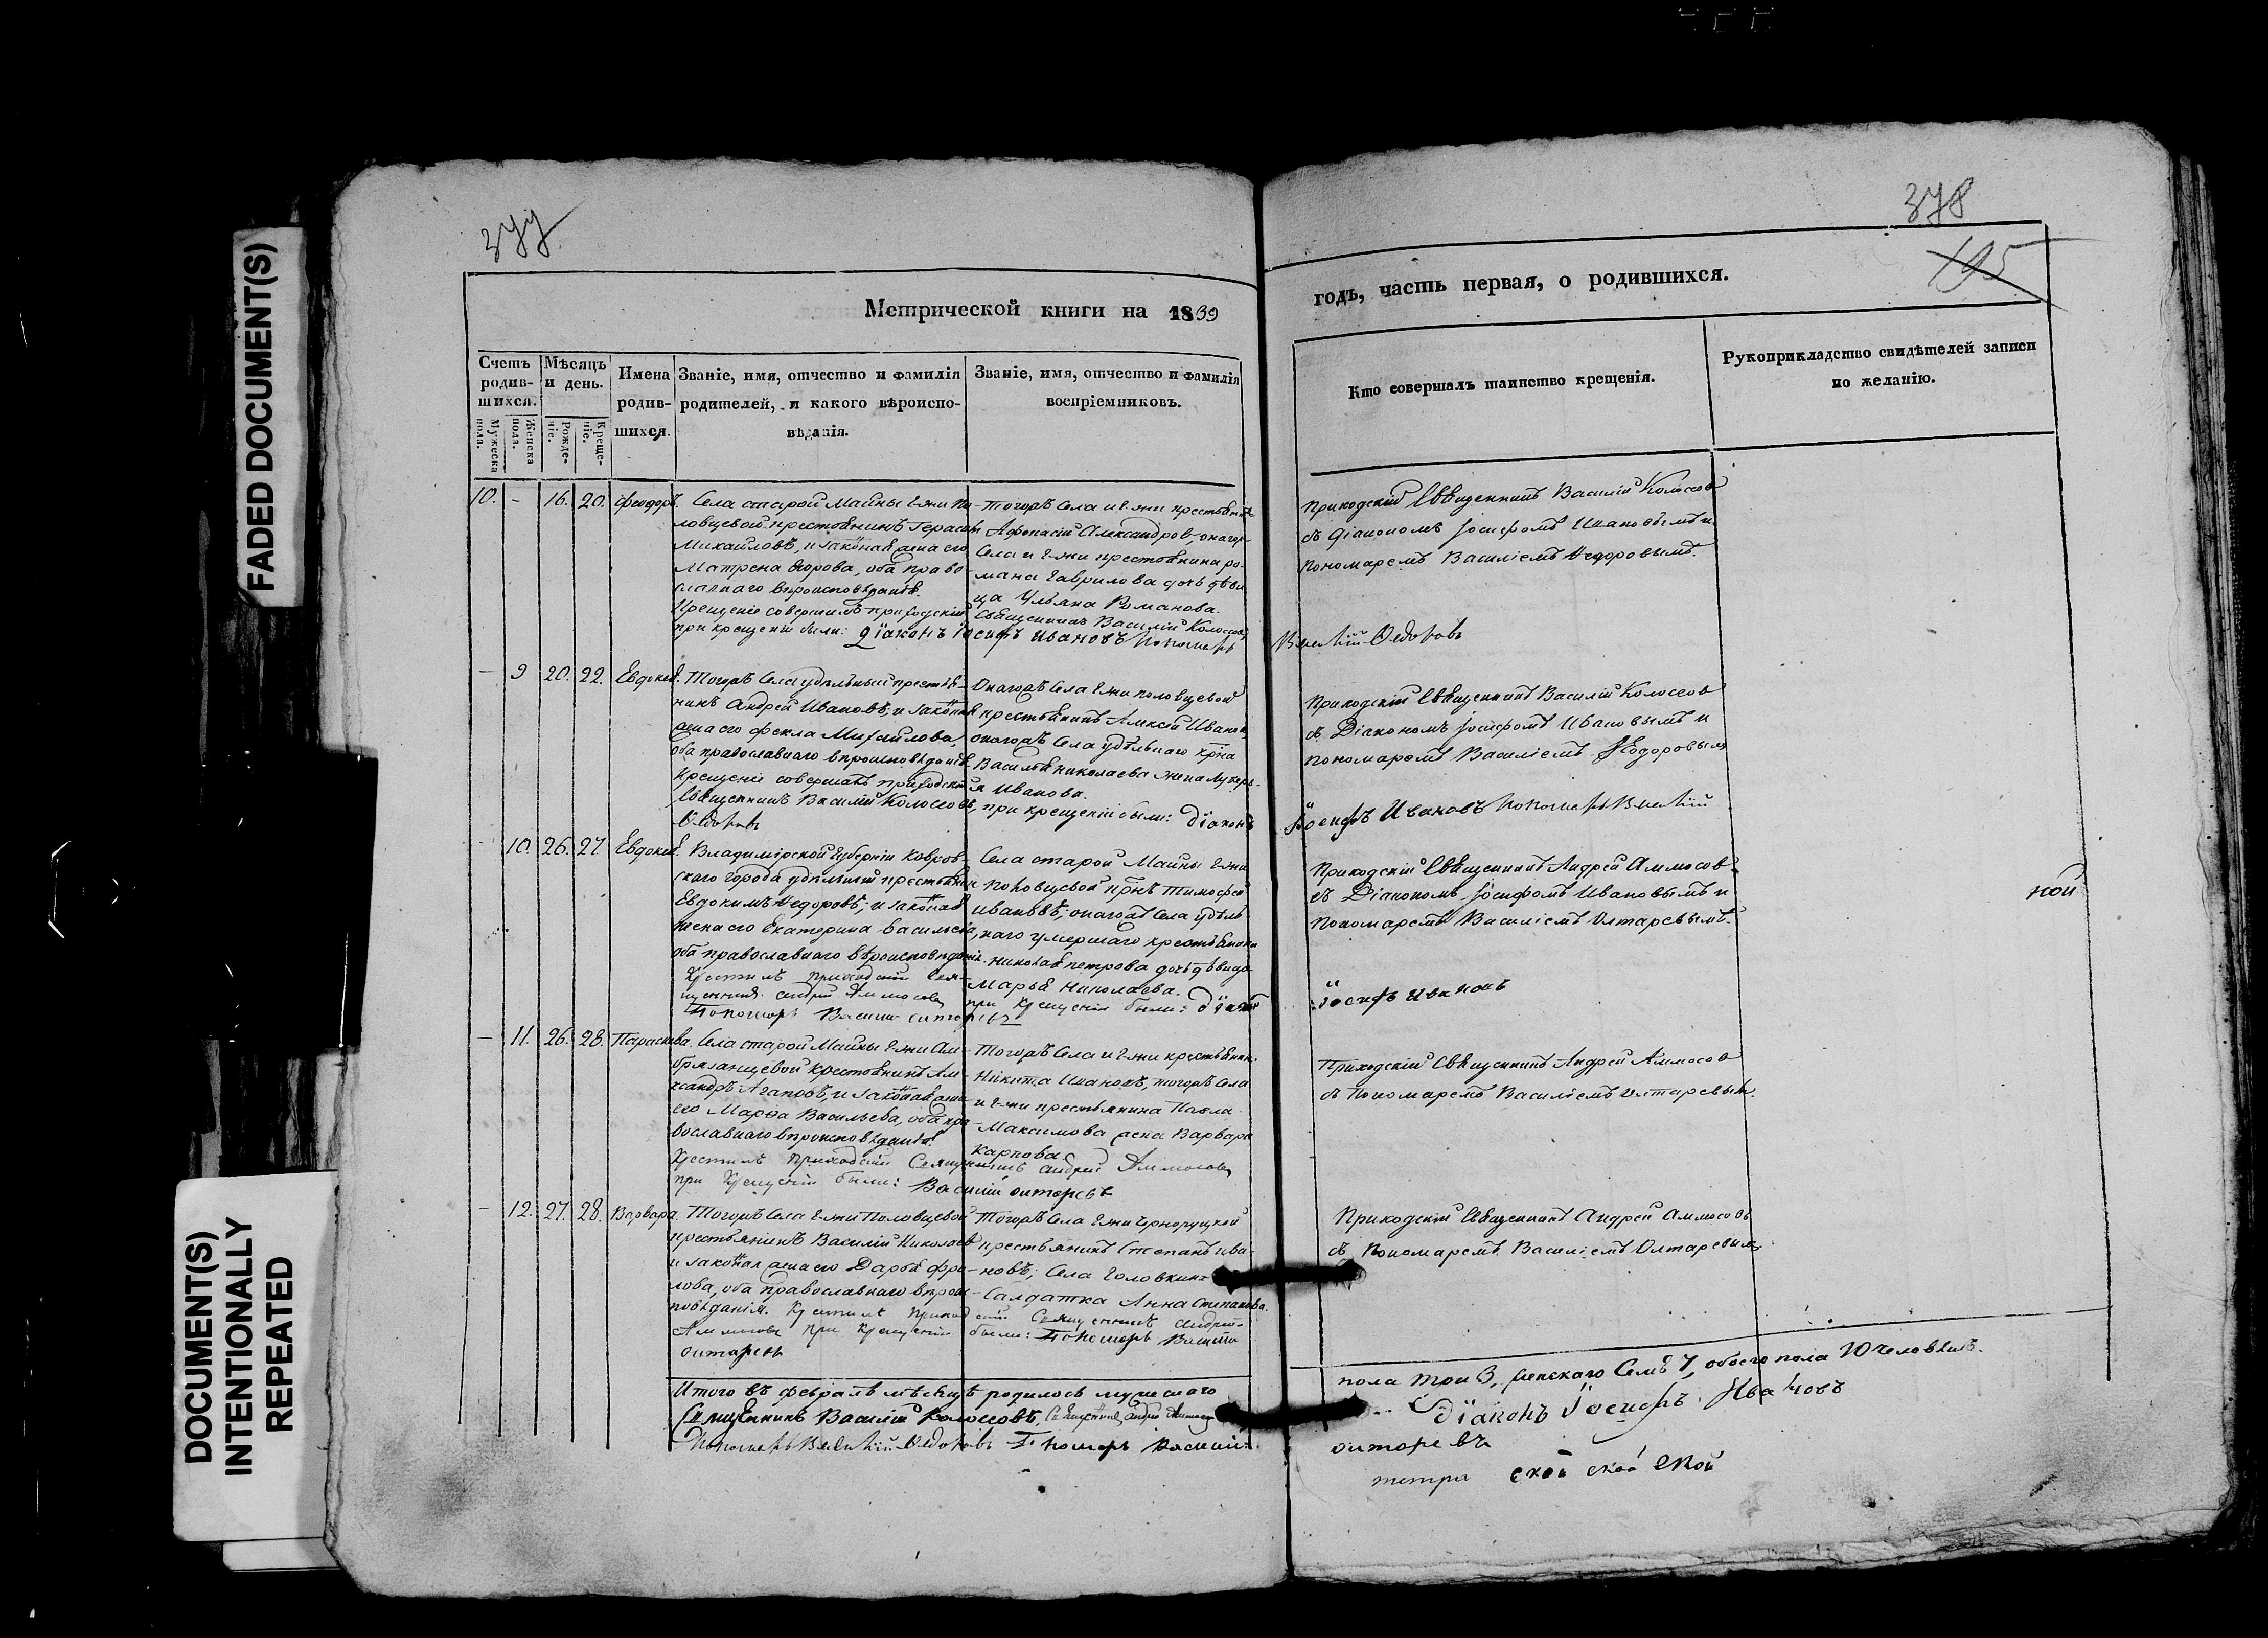 FADED DOCUMENT(S)
DOCUMENT(S)
INTENTIONALLY
REPEATED
377
Метрической книги на 1839
Счетъ родив-шихся.
Мужеска пола.
Женска пола.
Мѣсяцъ и день.
Рожде-ніе.
Креще-ніе.
Имена родив-шихся.
Званіе, имя, отчество и фамилія
родителей, и какого вѣроиспо-
вѣданія.
Званіе, имя, отчество и фамилія
воспріемниковъ.
10. - 16. 20. Феодоръ.
Села старой Майны Г-жи По-
ловцевой крестьянинъ Герасим
Михайловъ, и законная жена его
Матрена Егорова, оба право-
славнаго вѣроисповѣданія.
Крещеніе совершилъ приходскій
Священникъ Василій Колосовъ,
при крещеніи были: Діаконъ Іосифъ Ивановъ Пономарь
Василій Ѳедоровъ
Тогожъ Села и Г-жи крестьянинъ
Афонасій Александров, онаго
Села и Г-жи крестьянина Ро-
мана Гаврилова дочь дѣви
ца Ульяна Романова.
- 9 20. 22. Евдокія.
Тогожъ Села удѣльный крестья-
нинъ Андрей Ивановъ; и законная
жена его Фекла Михайлова,
оба православнаго вѣроисповѣданія
Крещеніе совершалъ приходскій
Священникъ Василій Колосовъ, при крещеніи были: Діаконъ
Іосифъ Ивановъ Пономарь Василій
Ѳедоровъ
Онагожъ Села Г-жи Половцевой
крестьянинъ Алексей Иванов,
онагожъ Села удѣльнаго кр͠на
Василья Николаева жена Лукерь-
я Иванова.
- 10. 26. 27. Евдокія.
Владимірской Губерніи Ковров-
скаго города удѣльный крестьянин
Евдокимъ Федоровъ; и законная
жена его Екатерина Васильева,
оба православнаго вѣроисповѣданія.
Крестилъ приходскій Свя-
щенникъ Андрей Аммосовъ
при крещеніи были: Діаконъ
Іосифъ Ивановъ
Пономарь Василій Олтаревъ
Села старой Майны Г-жи
Половцевой кр͠нъ Тимофей
Ивановъ; онагожъ Села удѣль
наго умершаго крестьянина
Николая Петрова дочь дѣвица
Марья Николаева.
- 11. 26. 28. Параскева.
Села старой Майны Г-жи Ам-
бразанцевой крестьянинъ Але-
ксандръ Агаповъ, и законная жена
его Марфа Васильева, оба пра-
вославнаго вѣроисповѣданія.
Крестилъ приходскій Священникъ Андрей Аммосовъ
при крещеніи были: Василій Олтаревъ
Тогожъ Села и Г-жи крестьянин.
Никита Ивановъ, тогожъ Села
и Г-жи крестьянина Павла
Максимова жена Варвара
Карпова
- 12. 27. 28. Варвара.
Тогожъ Села Г-жи Половцевой
крестьянинъ Василій Николаев
и законная жена его Дарья Фро-
лова, оба православнаго вѣроис-
повѣданія. Крестилъ приходскій Священникъ Андрей
Аммосовъ при крещеніи были: Пономарь Василій
Олтаревъ
Тогожъ Села Г-жи
крестьянинъ Степанъ Ива-
новъ; Села Головкина
Салдатка Анна Степанова.
Итого въ февралѣ мѣсяцѣ родилось мужескаго
Священникъ Василій Колосовъ, Священникъ Андрей Аммосовъ
Пономарь Василій Ѳедоровъ Пономарь Василій
378
195
годъ, часть первая, о родившихся.
Кто совершалъ таинство крещенія.
Рукоприкладство свидѣтелей записи
по желанію.
Приходскій Священникъ Василій Колосов
съ Діакономъ Іосифомъ Ивановымъ и
Пономаремъ Василіемъ Федоровымъ.
Приходскій Священникъ Василій Колосов
съ Діакономъ Іосифомъ Ивановымъ и
Пономаремъ Василіемъ Федоровым
Приходскій Священникъ Андрей Аммосов
съ Діакономъ Іосифомъ Ивановымъ и
Пономаремъ Василіемъ Олтаревымъ.
ной
Приходскій Священникъ Андрей Аммосов
съ Пономаремъ Василіемъ Олтаревым.
Приходскій Священникъ Андрей Аммосовъ
съ Пономаремъ Василіемъ Олтаревым
пола три 3, женскаго Семь 7, обоего пола 10 человѣкъ.
Діаконъ Іосифъ Ивановъ
Олтаревъ
метри ской ской ской